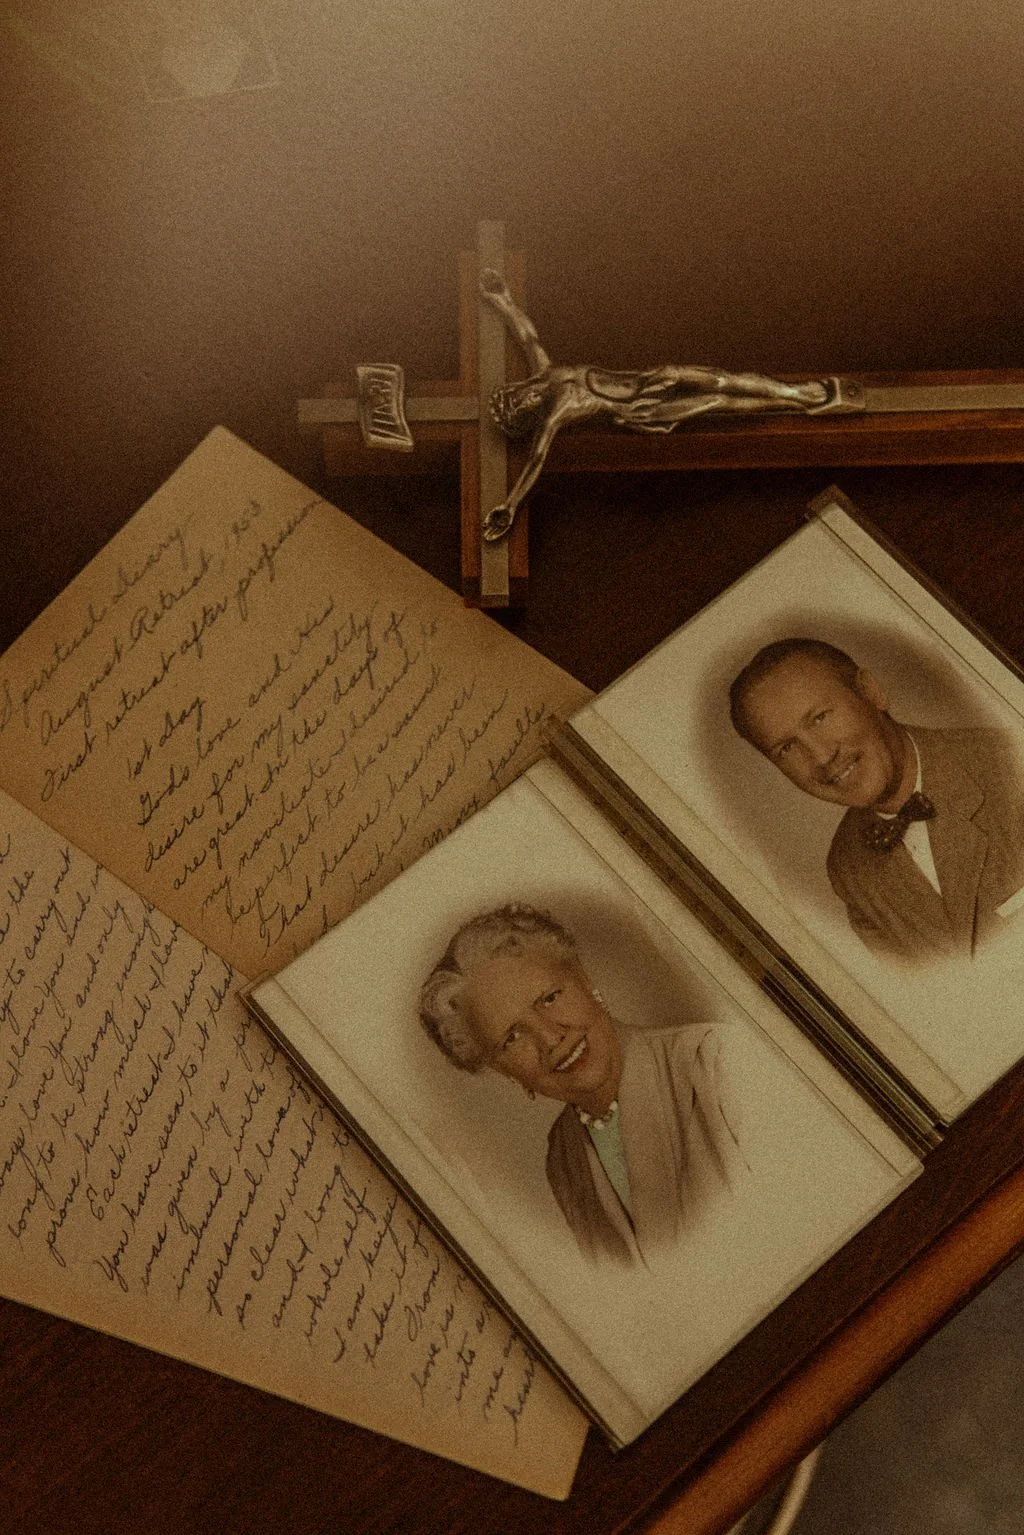 INRI
Spiritual Diary
August Retreat, 1953
First retreat after profession
1st Day
God's love and His
desire for my sanctity
are great. In the days of
my novitiate I desired to
be perfect to be a saint
That desire has never
but it has been
Many faults
the
to carry out
I love You and
love You and only
long to be strong enough
prove how much I love
Each retreat I have
You have seen to it that
was given by a
imbued with
personal love of
so clear what
and I long to
whole self.
I am
take it
From
love is
into
me
heart